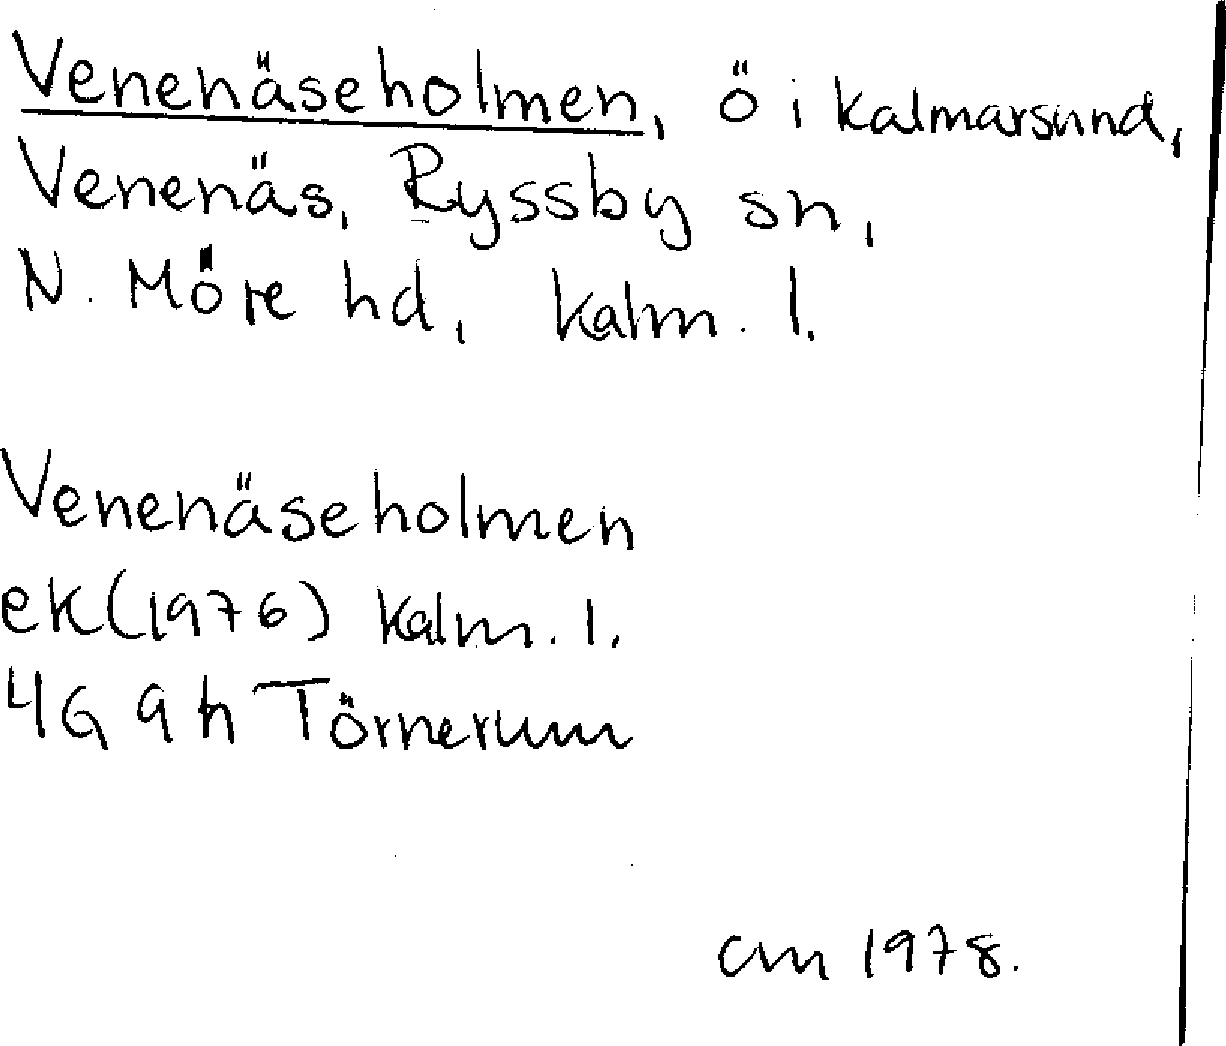 Venenäseholmen, ö i Kalmarsund,
Venenäs, Ryssby sn,
N. Möre hd, Kalm. l.
Venenäseholmen
ek(1976) Kalm. l.
4G 9h Törnerum
cm 1978.